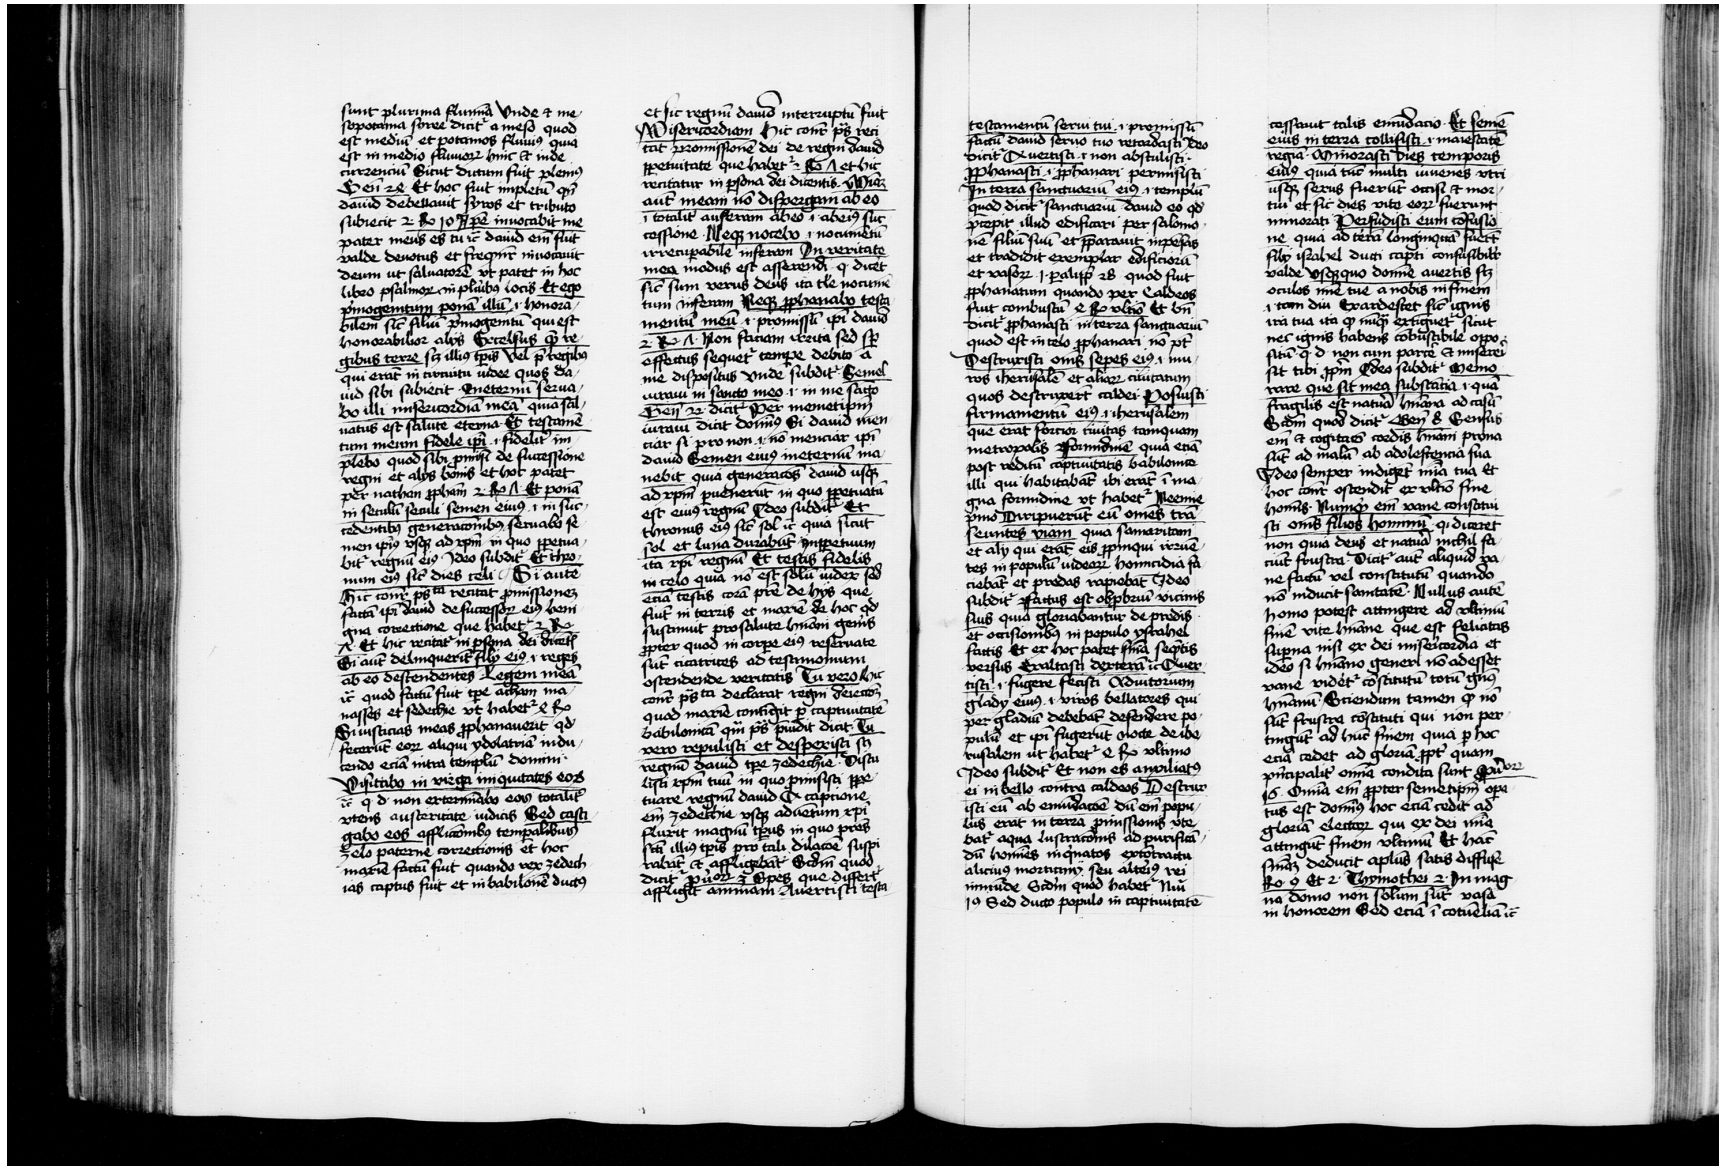 sunt plurima flumina Unde et me
sopotamia soree dicit a meso quod
est mediū et potamos fluvius quia
est in medio fluvior hinc et inde
currenciū Sicut dictum fuit plenius
Gen 28 Et hoc fuit impletū qn
david debellavit syros et tributo
subiecit 2 Ro 10 Ipe invocabit me
pater meus es tu ic david em fuit
valde devotus et frequēt invocavit
deum ut salvatorē ut patet in hoc
libro psalmor in plibus locis Et ego
pmogenitum ponā illū .i. honora
bilem sic filiū pmogenitū qui est
honorabilior alys Excelsus p re
gibus terre scz illius tpis Vel p regibus
qui erāt in circuitu iudee quos da
vid sibi subiecit Ineternū serva
bo illi misericordiā meā quia sal
vatus est salute eterna Et testamē
tum meum fidele ipi .i. fidelit im
plebo quod sibi pmisi de successione
regni et alys bonis et hoc patet
per nathan ppham 2 Ro 7 Et ponā
in seculū seculi semen eius .i. in suc
cedentibus generacoibus servabo se
men ipius usqz ad xpm in quo ppetua
bit regnū eius Ideo subdit Et thro
num eius sic dies celi Si autē
Hic cont ps ta recitat pmissionez
factā ipi david de successor eius beni
gna correctione que habet 2 Ro
7 Et hic recitat in psona dei dicētis
Si aut delinquerit fily eius .i. reges
ab eo descendentes Legem meā
ic quod factū fuit tpe acham ma
nasses et sedechie ut habet 4 Ro
Si iusticias meas pphanaverit qd
fecerūt eor aliqui ydolatriā indu
cendo eciā intra templū domini
Visitabo in virga iniquitates eor
ic q d non exterminabo eos totalit
utens austeritate iudicis Sed casti
gabo eos afflictionibus tempalibus
zelo paterne correctionis et hoc
maxie factū fuit quando rex zedech
ias captus fuit et in babilonē ductus
et sic regnū david interruptū fuit
Misericordiam Hic cont ps reci
tat promissionē dei de regni david
ppetuitate que habet 2 Ro 7 et hic
recitatur in psona dei dicentis Miam
aut meam nō dispergam ab eo
.i. totalit auferam ab eo .i. ab eius suc
cessione Neqz nocebo .i. nocumētū
irrecupabile inferam In veritate
mea modus est asserendi q dicet
sic sum verus deus ita tle nocumē
tum inferam Neqz pphanabo testa
mentū meū .i. promissū ipi david
2 Ro 7 Non faciam irrita sed
effectus sequet tempe debito a
me dispositus Unde subdit Semel
iuravi in sancto meo .i. in me scto
Gen 22 dicit Per memetipm
iuravi dicit dominus Si david men
ciar si pro non .i. nō menciar ipi
david Semen eius ineternū ma
nebit quia generacoes david usqz
ad xpm pvenerūt in quo ppetuatū
est eius regnū Ideo subdit Et
thronus eius sic sol ic quia sicut
sol et luna durabūt inppetuum
ita xpi regnū Et testis fidelis
in celo quia nō est solū iudex sed
eciā testis corā pre de hys que
fiūt in terris et maxie de hoc qd
sustinuit pro salute humani genis
ppter quod in corpe eius reservate
sūt cicatrices ad testimonium
ostendende veritatis Tu vero hic
cont ps ta declarat regni deiectoz
quod maxie contigit p captivitatē
babilonicā qm ps pvidit dicit Tu
vero repulisti et despexisti scz
regnū david tpe zedechie Distu
listi xpm tuū in quo pmisisti ppe
tuare regnū david A captione
em zedechie usqz adventum xpi
fluxit magnū tpus in quo pres
scti illius tpis pro tali dilacoe suspi
rabāt et affligebāt Scdm quod
dicit pverbior 13 Spes que differt
affligit animam Avertisti testa
testamentū servi tui .i. promissū
factū david servo tuo retardasti Ideo
dicit Avertisti .i. non abstulisti
pphanasti .i. pphanari permisisti
In terra sanctuariū eius .i. templū
quod dicit sanctuariū david eo qd
pcepit illud edificari per salomo
nē filiū suū et pparavit inpēsas
et tradidit exemplar edificiorū
et vasor 1 paralip 28 quod fuit
pphanatum quando per Caldeos
fuit combustū 4 Ro ultio Et bn
dicit pphanasti in terra sanctuariū
quod est in celo pphanari nō pōt
Destruxisti omes sepes eius .i. mu
ros iherusalē et alior civitatum
quos destruxerūt caldei Posuisti
firmamentū eius .i. iherusalem
que erat forcior civitas tamquam
metropolis Formidinē quia eciā
post reditū captivitatis babilonice
illi qui habitabāt ibi erāt i ma
gna formidine ut habet Neemie
pmo Diripuerūt eū omes trā
seuntes viam quia samaritani
et aly qui erāt eis ppinqui irrue
tes in populū iudeor homicidia fa
ciebāt et predas rapiebāt Ideo
subdit Factus est obpbriū vicinis
suis quia gloriabantur de predis
et occisionibus in populo ysrahel
factis Et ex hoc patet snia seqntis
versus Exaltasti dexterā ic Aver
tisti .i. fugere fecisti Adiutorium
glady eius .i. viros bellatores qui
per gladiū debebāt defendere po
pulū et ipi fugerūt nocte de ihe
rusalem ut habet 4 Ro ultimo
Ideo subdit Et non es auxiliatus
ei in bello contra caldeos Destrux
isti eū ab emūdacoe dū em popu
lus erat in terra pmissionis ute
bat aqua lustracionis ad purificā
dū homies inqnatos ex contactu
alicuius morticini seu alteius rei
inmūde Scdm quod habet Nui
19 Sed ducto populo in captivitatē
cessavit talis emūdacio Et sedē
eius in terra collisisti .i. maiestatē
regiā Minorasti dies temporis
eius quia tūc multi iuvenes utri
usqz sexus fuerūt occisi et mor
tui et sic dies vite eor fuerunt
minorati Perfudisti eum cōfusio
ne quia ad terrā longinquā fuerūt
fily israhel ducti capti confusibilit
valde Usqzquo domine avertis scz
oculos mie tue a nobis in finem
.i. tam diu Exardescet sic ignis
ira tua ita q nūqz extiguet sicut
nec ignis habens cōbustibile oppo
situm q d non cum parcē et miserei
sit tibi ppm Ideo subdit Memo
rare que sit mea substātia .i. quā
fragilis est natura hūana ad casū
Scdm quod dicit Gen 8 Sensus
em et cogitacō cordis humani prona
sūt ad malū ab adolescencia sua
Ideo semper indiget mia tua Et
hoc cont ostendit ex ultio fine
homis Nunqd em vane constitui
sti omes filios hominū q diceret
non quia deus et natura nichil fa
ciūt frustra Dicit aut aliquid va
ne factū vel constitutū quando
nō inducit sanitatē Nullus autē
homo potest attingere ad ultimū
finē vite hūane que est felicitas
supna nisi ex dei misericordia et
ideo si hūano generi nō adesset
vane videret cōstitutū totū genus
hūanū Sciendum tamen q nō
sūt frustra cōstituti qui non per
tingūt ad hūc finem quia p hoc
eciā cedet ad gloriā ppt quam
principalit omia condita sunt pverbior
16 Omia em propter semetipm ope
tus est dominus hoc eciā cedit ad
gloriā elector qui ex dei mia
attingūt finem ultimū Et hāc
sniaz deducit aplus satis diffuse
Ro 9 et 2 Thymothei 2 In mag
na domo non solum sūt vasa
in honorem Sed eciā i cōtumeliā ic